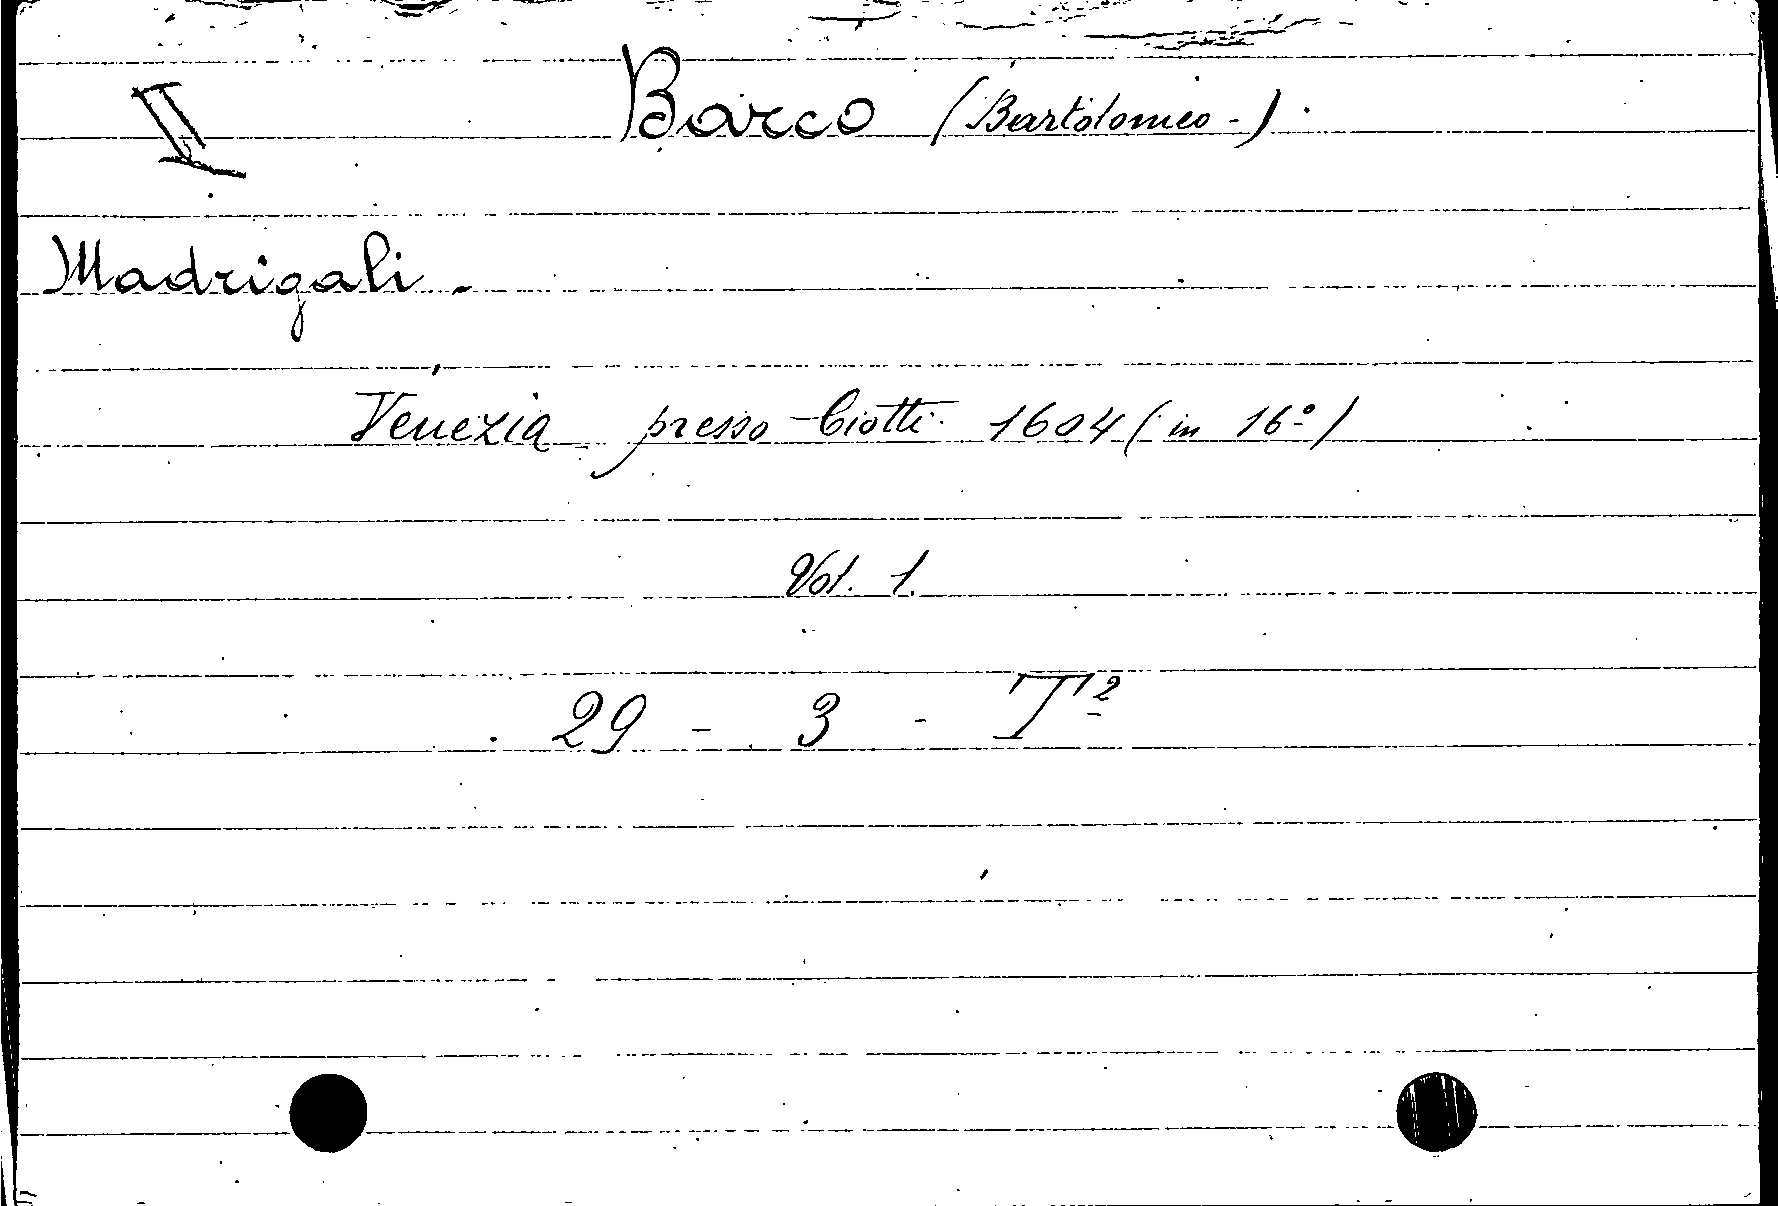 II
Barco (Bartolomeo-).
Madrigali.
Venezia presso Ciotti. 1604 (in 16°)
Vol. 1.
29 - 3 - T²